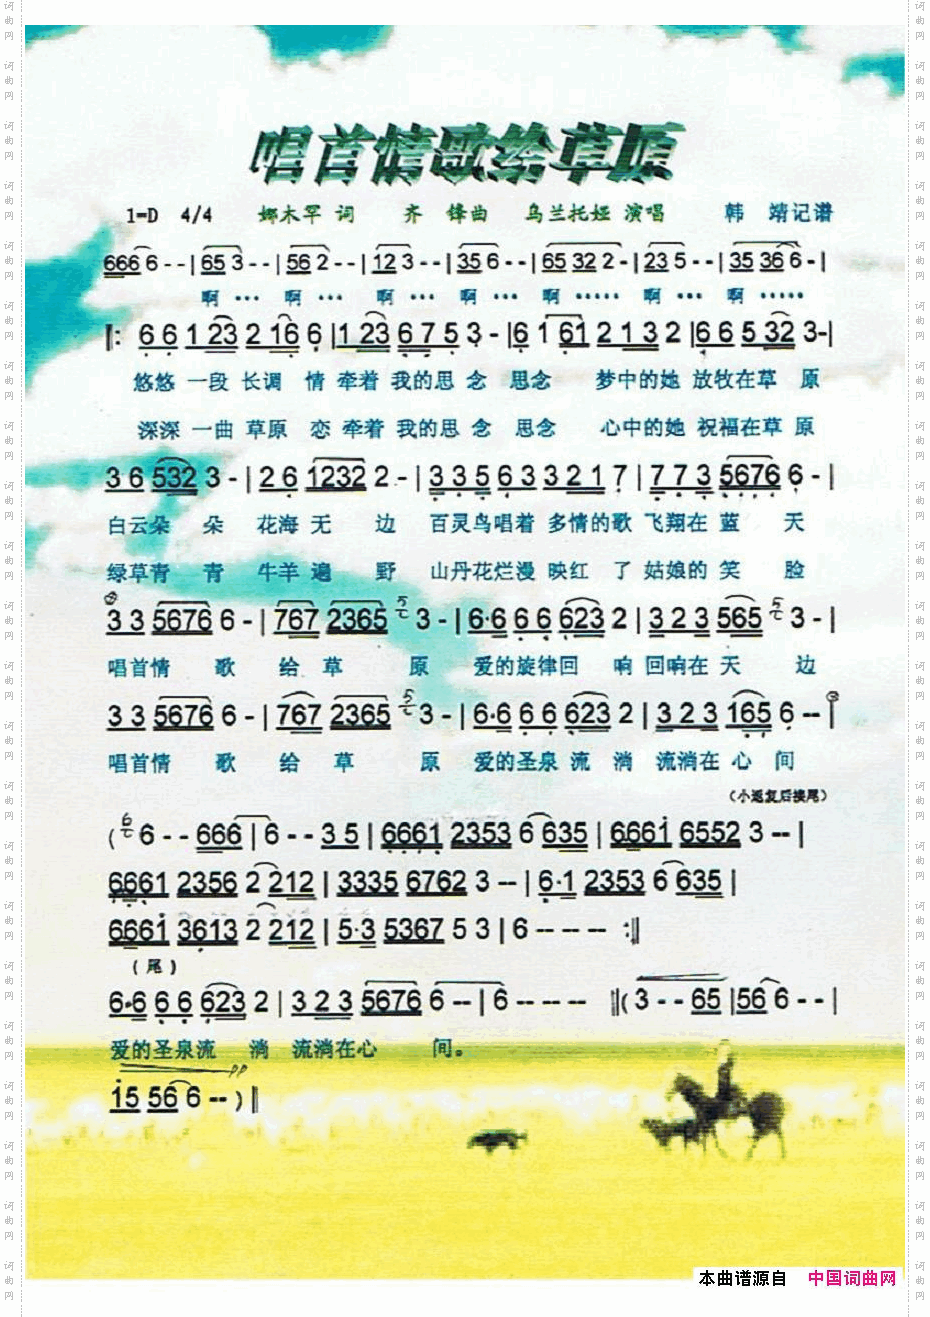 唱首情歌给草原
1=D 4/4 娜木罕 词 齐 锋曲 乌兰托娅 演唱 韩 靖记谱
666 6 - - | 65 3 - - | 56 2 - - | 12 3 - - | 35 6 - - | 65 32 2 - | 23 5 - - | 35 36 6 - |
啊 … 啊 … 啊 … 啊 … 啊 …… 啊 … 啊 ……
‖: 6 6 1 23 2 16 6 | 1 23 6 7 5 3 - | 6 1 61 2 1 3 2 | 6 6 5 32 3 - |
悠悠 一段 长调 情 牵着 我的思 念 思念 梦中的她 放牧在草 原
深深 一曲 草原 恋 牵着 我的思 念 思念 心中的她 祝福在草 原
3 6 532 3 - | 2 6 1232 2 - | 3 3 5 6 3 3 2 2 1 7 | 7 7 3 5676 6 - |
白云朵 朵 花海 无 边 百灵鸟唱着 多情的歌 飞翔在 蓝 天
绿草青 青 牛羊 遍 野 山丹花烂漫 映红 了 姑娘的 笑 脸
3 3 5676 6 - | 767 2365 5 3 - | 6·6 6 6 623 2 | 3 2 3 565 5 3 - |
唱首情 歌 给 草 原 爱的旋律回 响 回响在 天 边
3 3 5676 6 - | 767 2365 5 3 - | 6·6 6 6 623 2 | 3 2 3 165 6 - - |
唱首情 歌 给 草 原 爱的圣泉 流 淌 流淌在 心 间
(小返复后接尾)
( 6 6 - - 666 | 6 - - 3 5 | 6661 2353 6 635 | 6661 6552 3 - - |
6661 2356 2 212 | 3335 6762 3 - - | 6·1 2353 6 635 |
6661 3613 2 212 | 5·3 5367 5 3 | 6 - - - - :‖
(尾)
6·6 6 6 623 2 | 3 2 3 5676 6 - - | 6 - - - - ‖( 3 - - 65 | 56 6 - - |
爱的圣泉流 淌 流淌在心 间。
pp
15 56 6 - - ) ‖
本曲谱源自 中国词曲网
词曲网